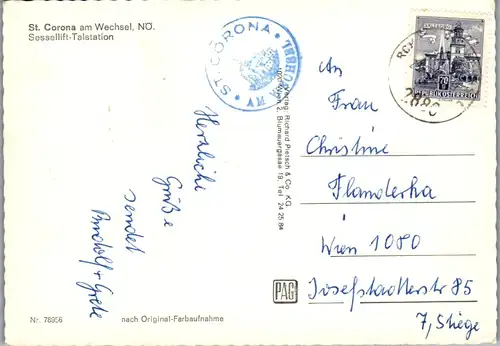 St. Corona am Wechsel, NÖ.
Sessellift-Talstation
Herzliche
Grüße
sendet
Rudolf + Grete
Nr. 76956
nach Original-Farbaufnahme
Verlag: Richard Pietsch & Co. KG.
Wien 2, Blumauergasse 19, Tel. 24 25 84
ST. CORONA
PAG
70
REPUBLIK ÖSTERREICH
2880
An
Frau
Christine
Flanderka
Wien 1080
Josefstädterstr 85
7, Stiege